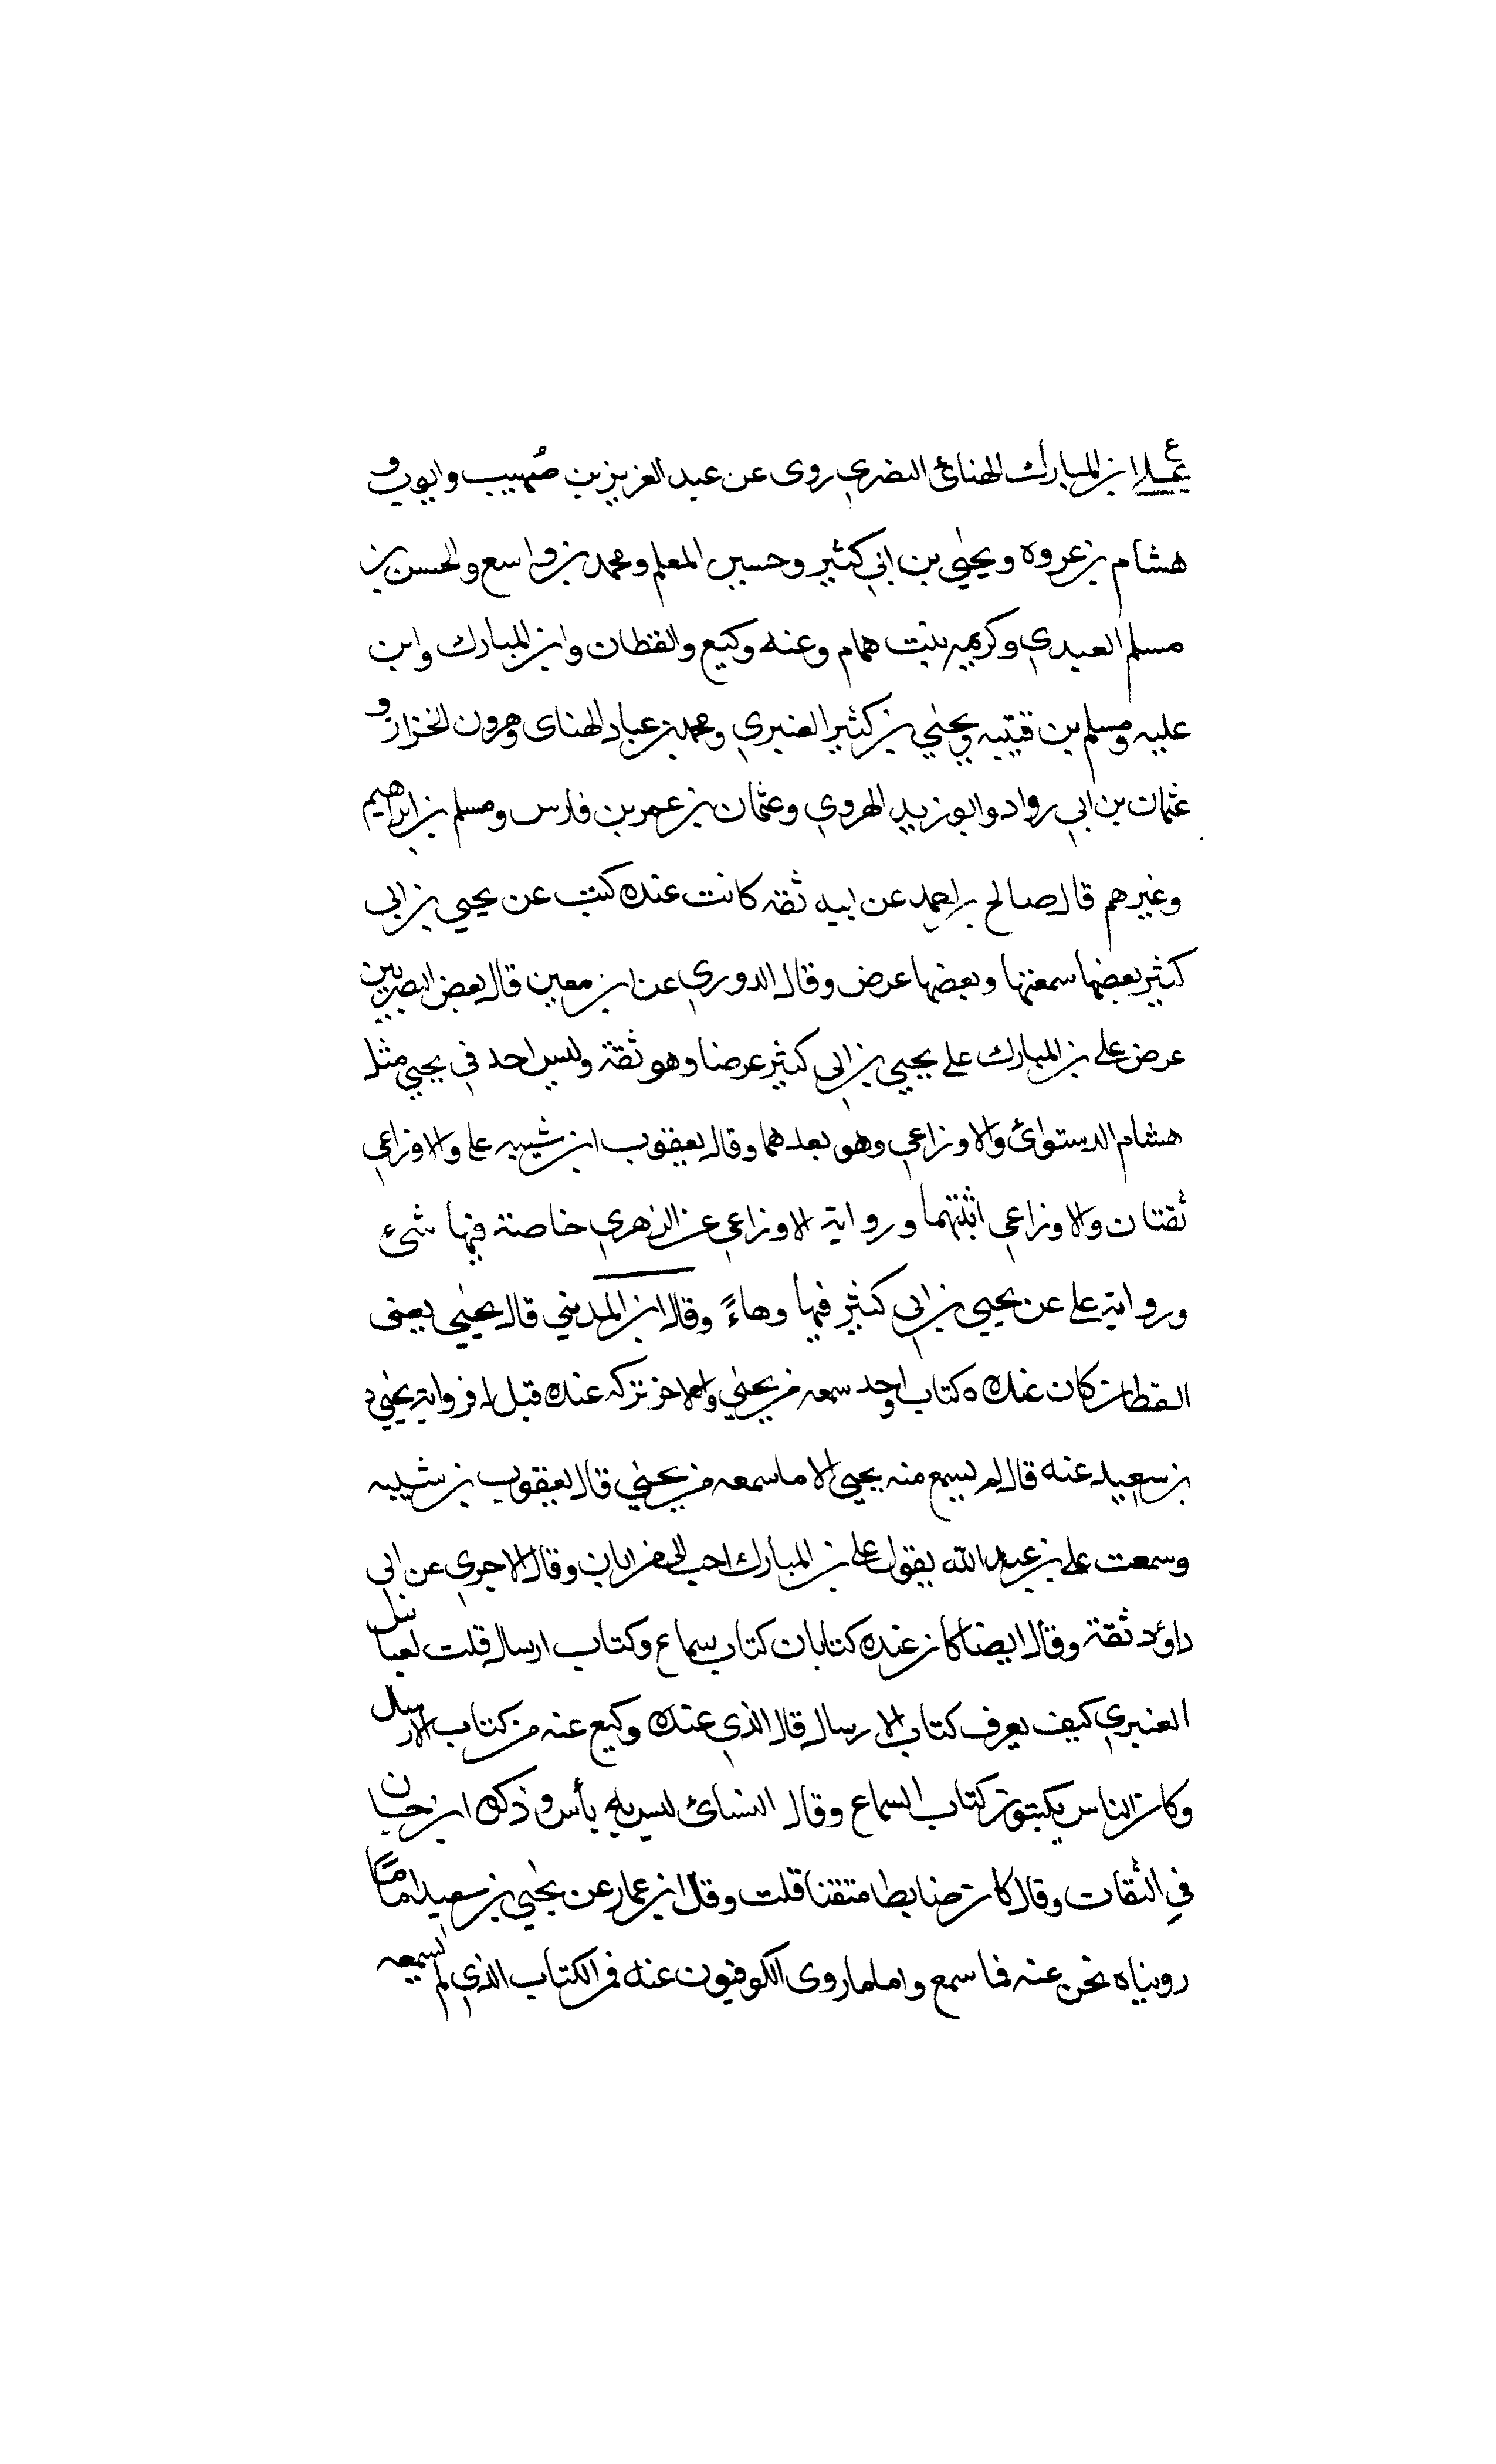 ع
على ابن المبارك الهنائي البصري روى عن عبد العزيز بن صُهيب وايوب و
هشام بن عروه ويحيى بن ابي كثير وحسين المعلم ومحمد بن واسع والحسن بن
مسلم العبدي وكريمه بنت همام وعنه وكيع والقطان وابن المبارك وابن
عليه ومسلم بن قتيبه ويحيى بن كثير العنبري ومحمد بن عباد الهناى وهرون الخزاز و
عثمان بن ابي رواد وابو زيد الهروي وعثمان بن عمر بن فارس ومسلم بن ابراهيم
وغيرهم قال صالح بن احمد عن ابيه ثقه كانت عنده كتب عن يحيى بن ابي
كثير بعضها سمعتها وبعضها عرض وقال الدوري عن ابن معين قال بعض البصريين
عرض على بن المبارك على يحيى بن ابي كثير عرضا وهو ثقة وليس احد في يحيى مثل
هشام الدستوائ والاوزاعي وهو بعدهما وقال يعقوب ابن شيبه على والاوزاعي
ثقتان والاوزاعي اثبتهما ورواية الاوزاعي عن الزهري خاصة فيها شئ
ورواية على عن يحيى بن ابي كثير فيها وهاءً وقال ابن المديني قال يحيى يعنى
القطان كان عنده كتاب واحد سمعه من يحيى والاخر تركه عنده قيل له فرواية يحيى
بن سعيد عنه قال لم يسمع منه يحيى الا ما سمعه من يحيى قال يعقوب بن شيبه
وسمعت على بن عبد الله يقول على بن المبارك احب الى من ابان وقال الاجري عن ابي
داود ثقة وقال ايضا كان عنده كتابان كتاب سماع وكتاب ارسال قلت لعباس
العنبري كيف يعرف كتاب الارسال قال الذي عند وكيع عنه من كتاب الارسال
وكان الناس يكتبون كتاب السماع وقال النسائ ليس به بأس وذكره ابن حبان
في الثقات وقال كان ضابطا متقنا قلت وقال ابن عمار عن يحيى بن سعيد اما ما
رويناه نحن عنه فما سمع واما ما روى الكوفيون عنه فمن الكتاب الذي لم يسمعه